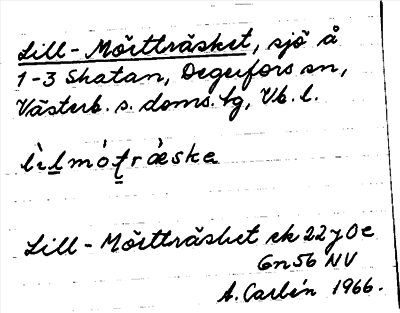 Lill-Mörtträsket, sjö å
1-3 Skatan, Degerfors sn,
Västerb. s. doms. tg, Vb. l.
lìlmótrǻska
Lill-Mörtträsket ek 22 J 0 e
Gn 56 NV
A. Carlén 1966.